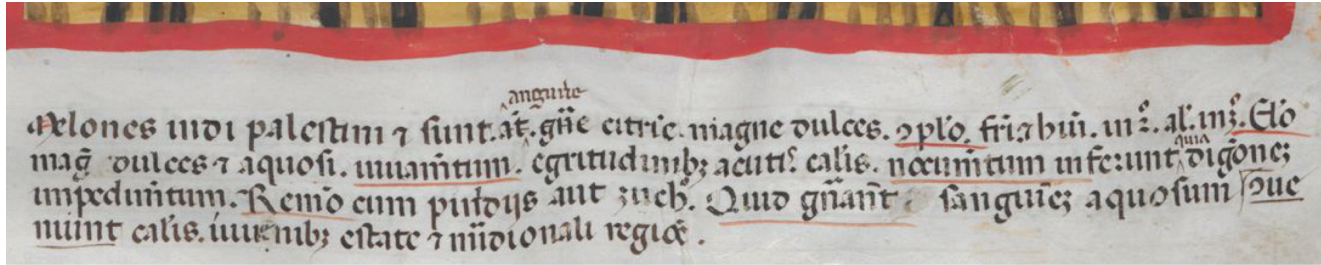 angurie
Melones indi palestini ⁊ sunt. at̄. gn̄e citrīe. magne dulces. ꝯplo. fri. ⁊ hui. in 2º. al. in 3º. Elō
mag̃ dulces ⁊ aquosi. iuuam̄tum. egritudinibꝫ acutis calis. nocum̄tum inferunt quia digōneꝫ
impedim̄tum. Remō cum pulīdijs aut zuch. Quid gn̄ant sanguīeꝫ aquosum ꝯue
niunt calis. iuuēnibꝫ estate ⁊ mīdionali regiōe.